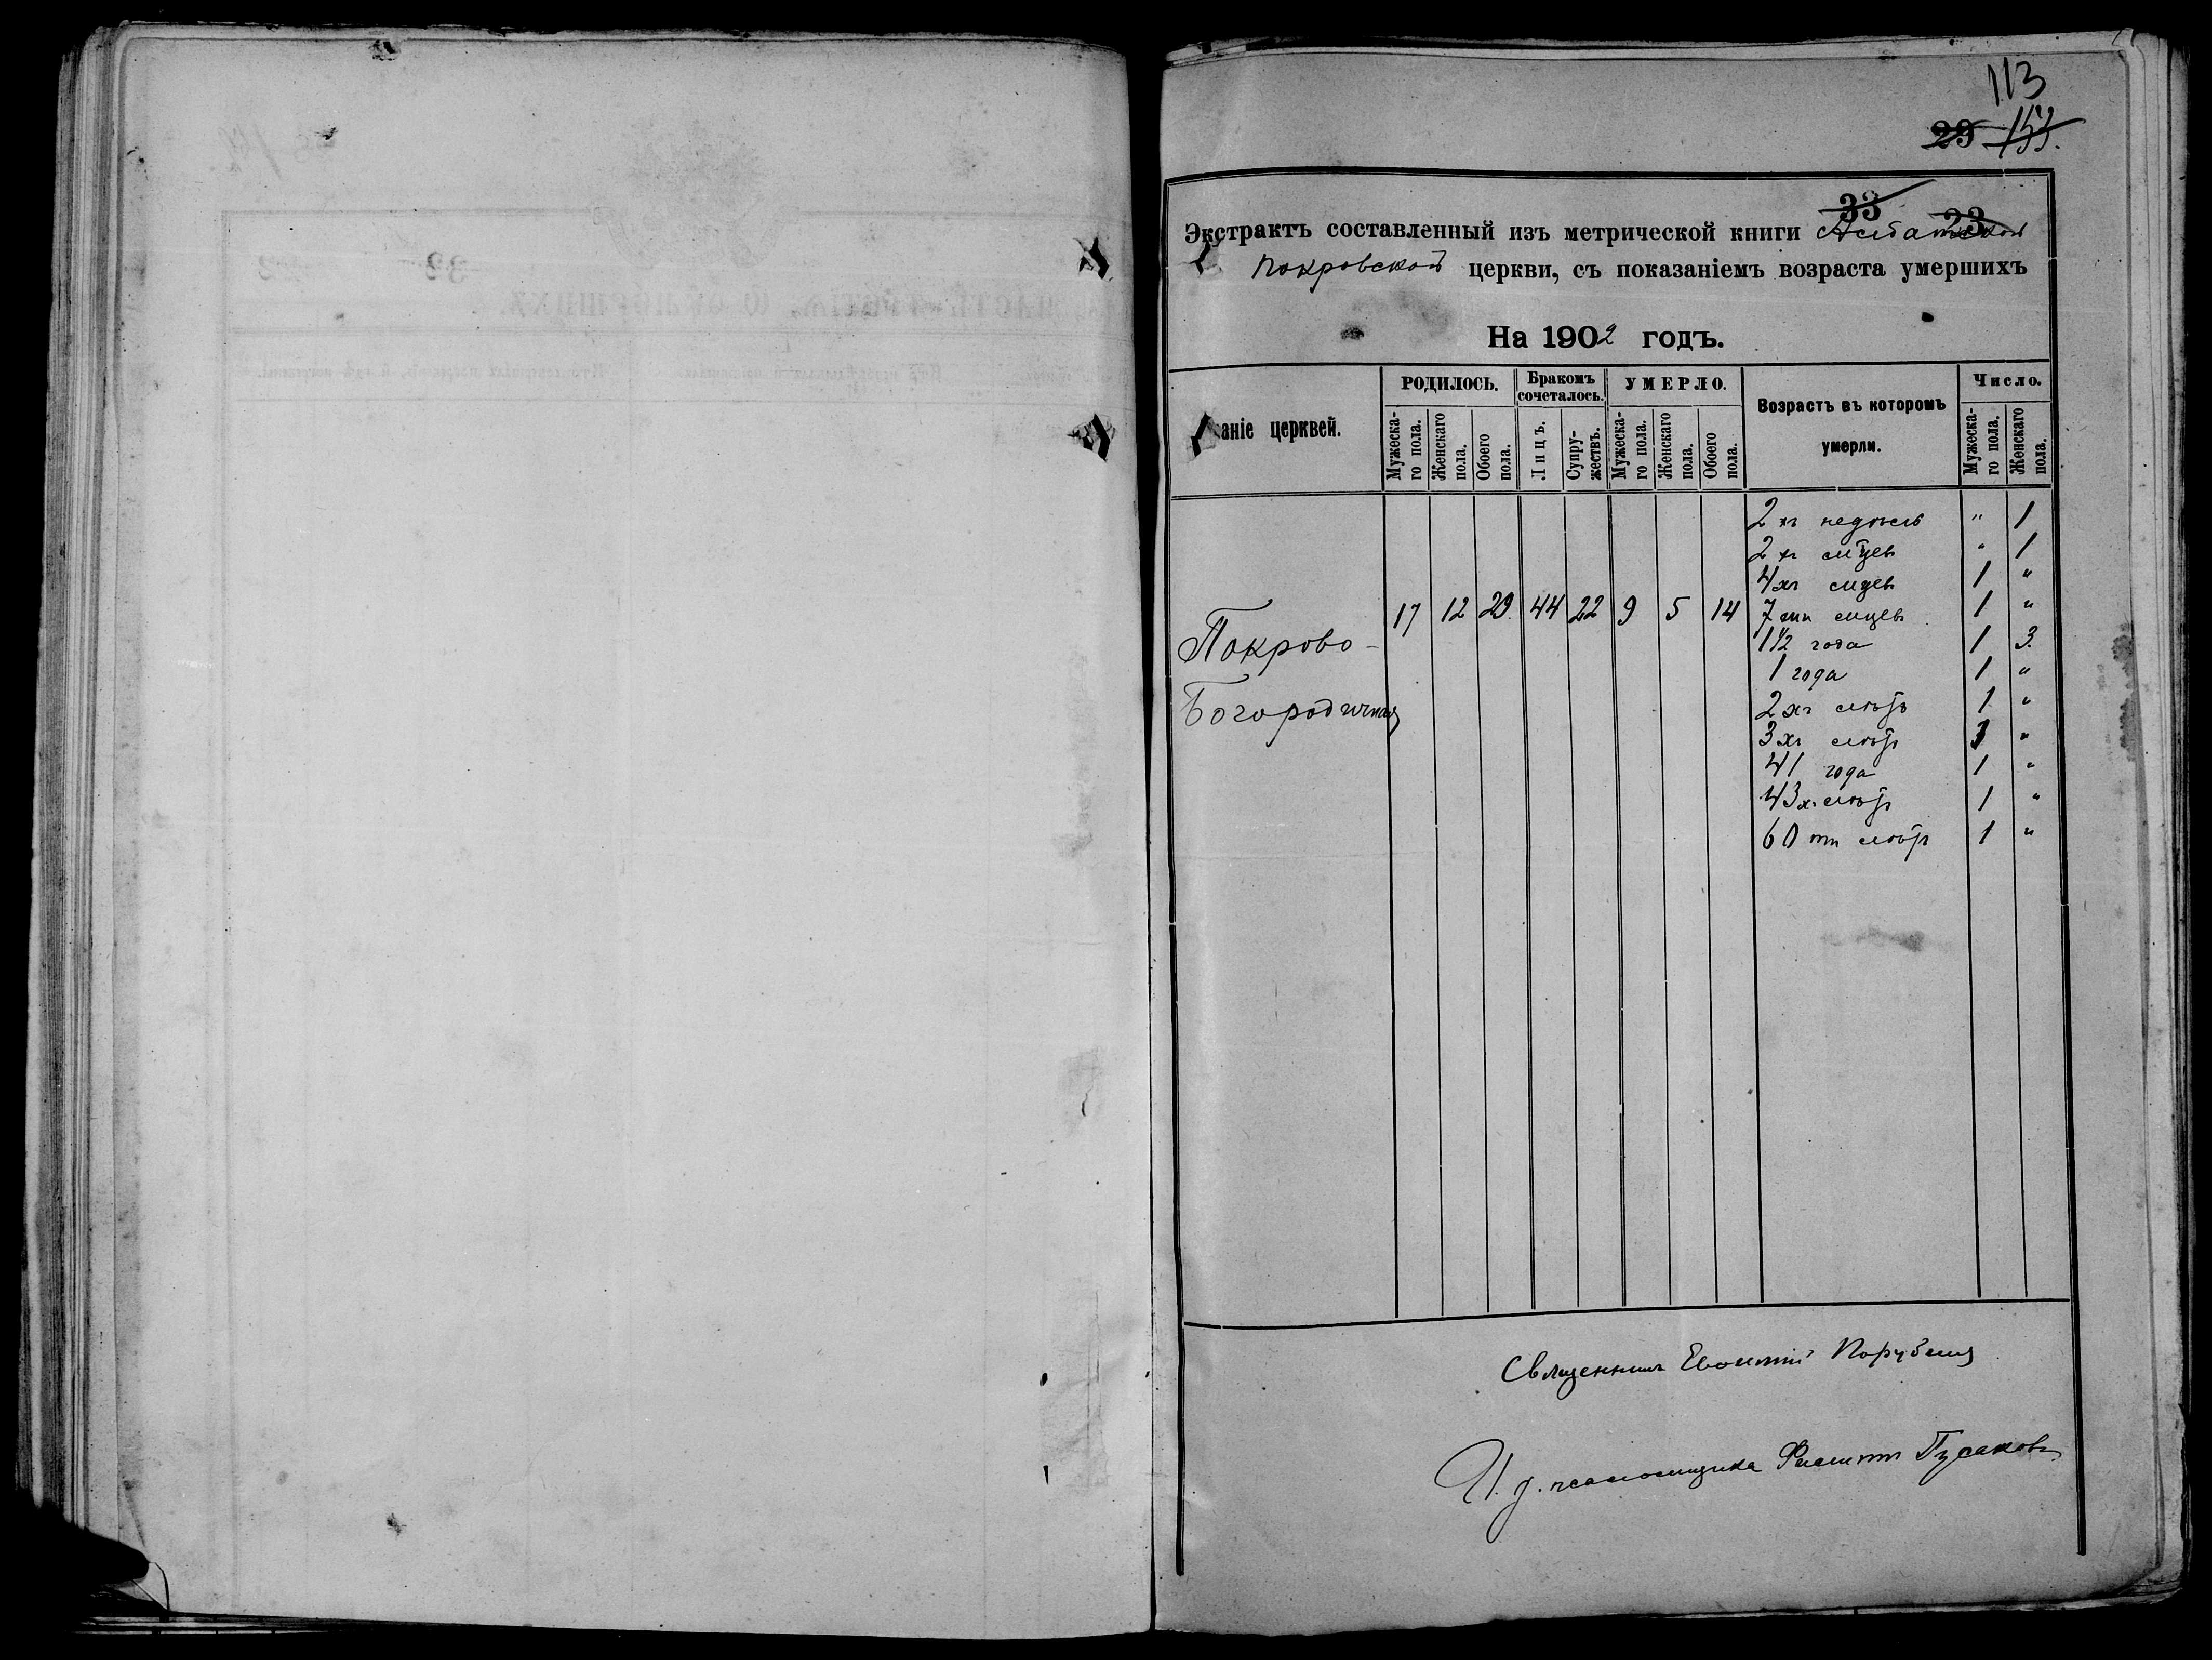 113
29 153.
33 23
Экстрактъ составленный изъ метрической книги
Покровской церкви, съ показаніемъ возраста умершихъ
На 1902 годъ.
аніе церквей.
РОДИЛОСЬ.
Мужеска-
го пола.
Женскаго
пола.
Обоего
пола.
Бракомъ
сочеталось.
Лицъ.
Супру-
жествъ.
УМЕРЛО.
Мужеска-
го пола.
Женскаго
пола.
Обоего
пола.
Возрастъ въ которомъ
умерли.
Число.
Мужеска-
го пола.
Женскаго
пола.
Покрово-
Богородичная
17 12 29 44 22 9 5 14
2хъ недѣль " 1
2хъ мцевъ " 1
4хъ мцевъ 1 "
7ми мцевъ 1 "
1 1/2 года 1 3
1 года 1 "
2хъ лѣтъ 1 "
3хъ лѣтъ "
41 года 1 "
43хъ лѣтъ 1 "
60ти лѣтъ 1 "
Священникъ
И. д. псаломщика Филиппъ Гусаковъ